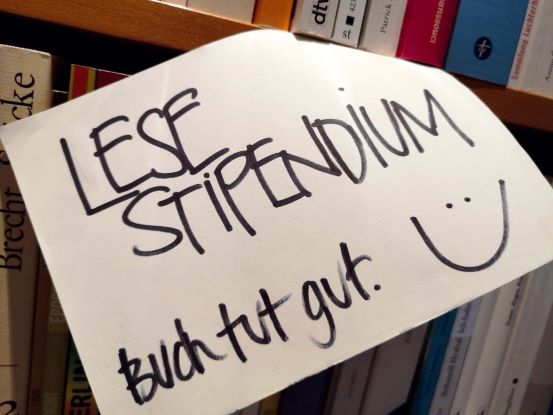 dtv
st
Patrick
anssouci
Sammlung Luchterhand
LESE
STiPENDiUM
Buch tut gut.
Brecht
BERLIN